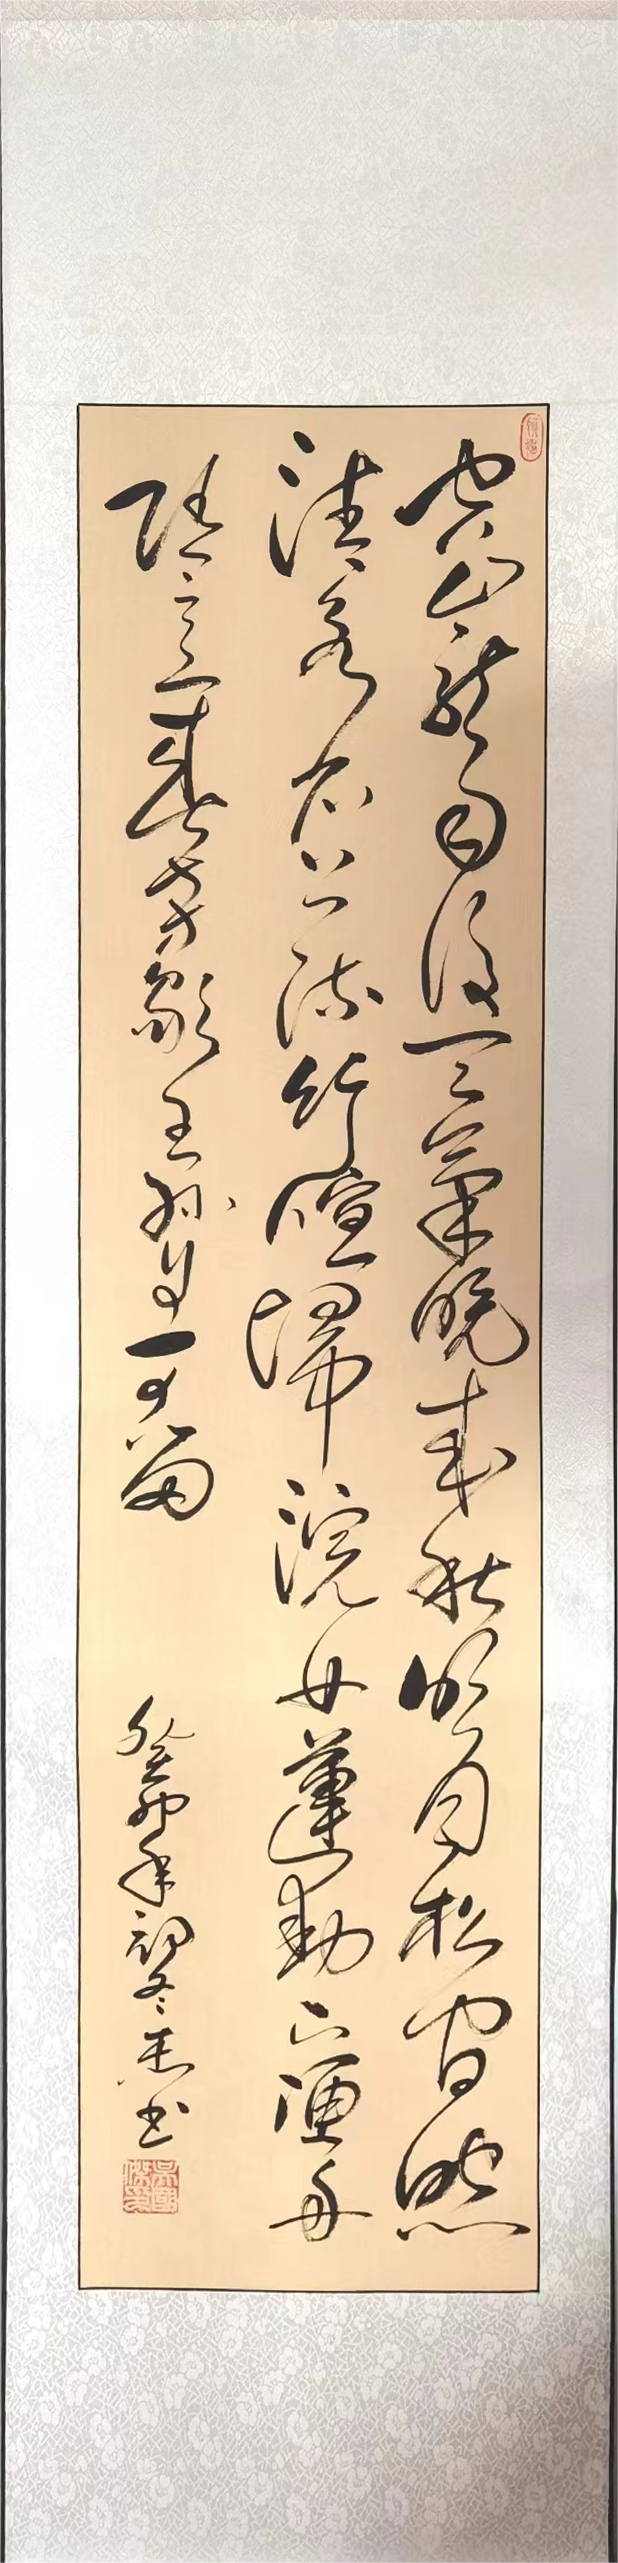 空山新雨後天氣晚來秋明月松間照
清泉石上流竹喧歸浣女蓮動下漁舟
隨意春芳歇王孫自可留
癸卯年初冬杰书